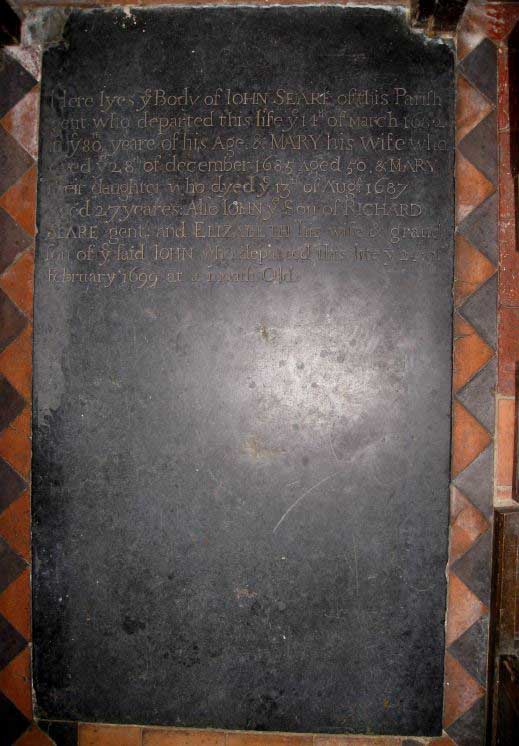 Here lyes yͤ Body of IOHN SEARE of this Parish
gent who departed this life yͤ 14ᵗʰ of MARCH
yͤ 80 yeare of his Age. & MARY his Wife who
dyed yͤ 28ᵗʰ of december 1685 Aged 50. & MARY
their daughter who dyed yͤ 13ᵗʰ of Augˢᵗ 1687
Aged 27 yeares. Also IOHN yͤ Son of RICHARD
SEARE gent: and ELIZABETH his wife & grand
son of yͤ said IOHN who departed this life yͤ
february 1699 at a month Old.